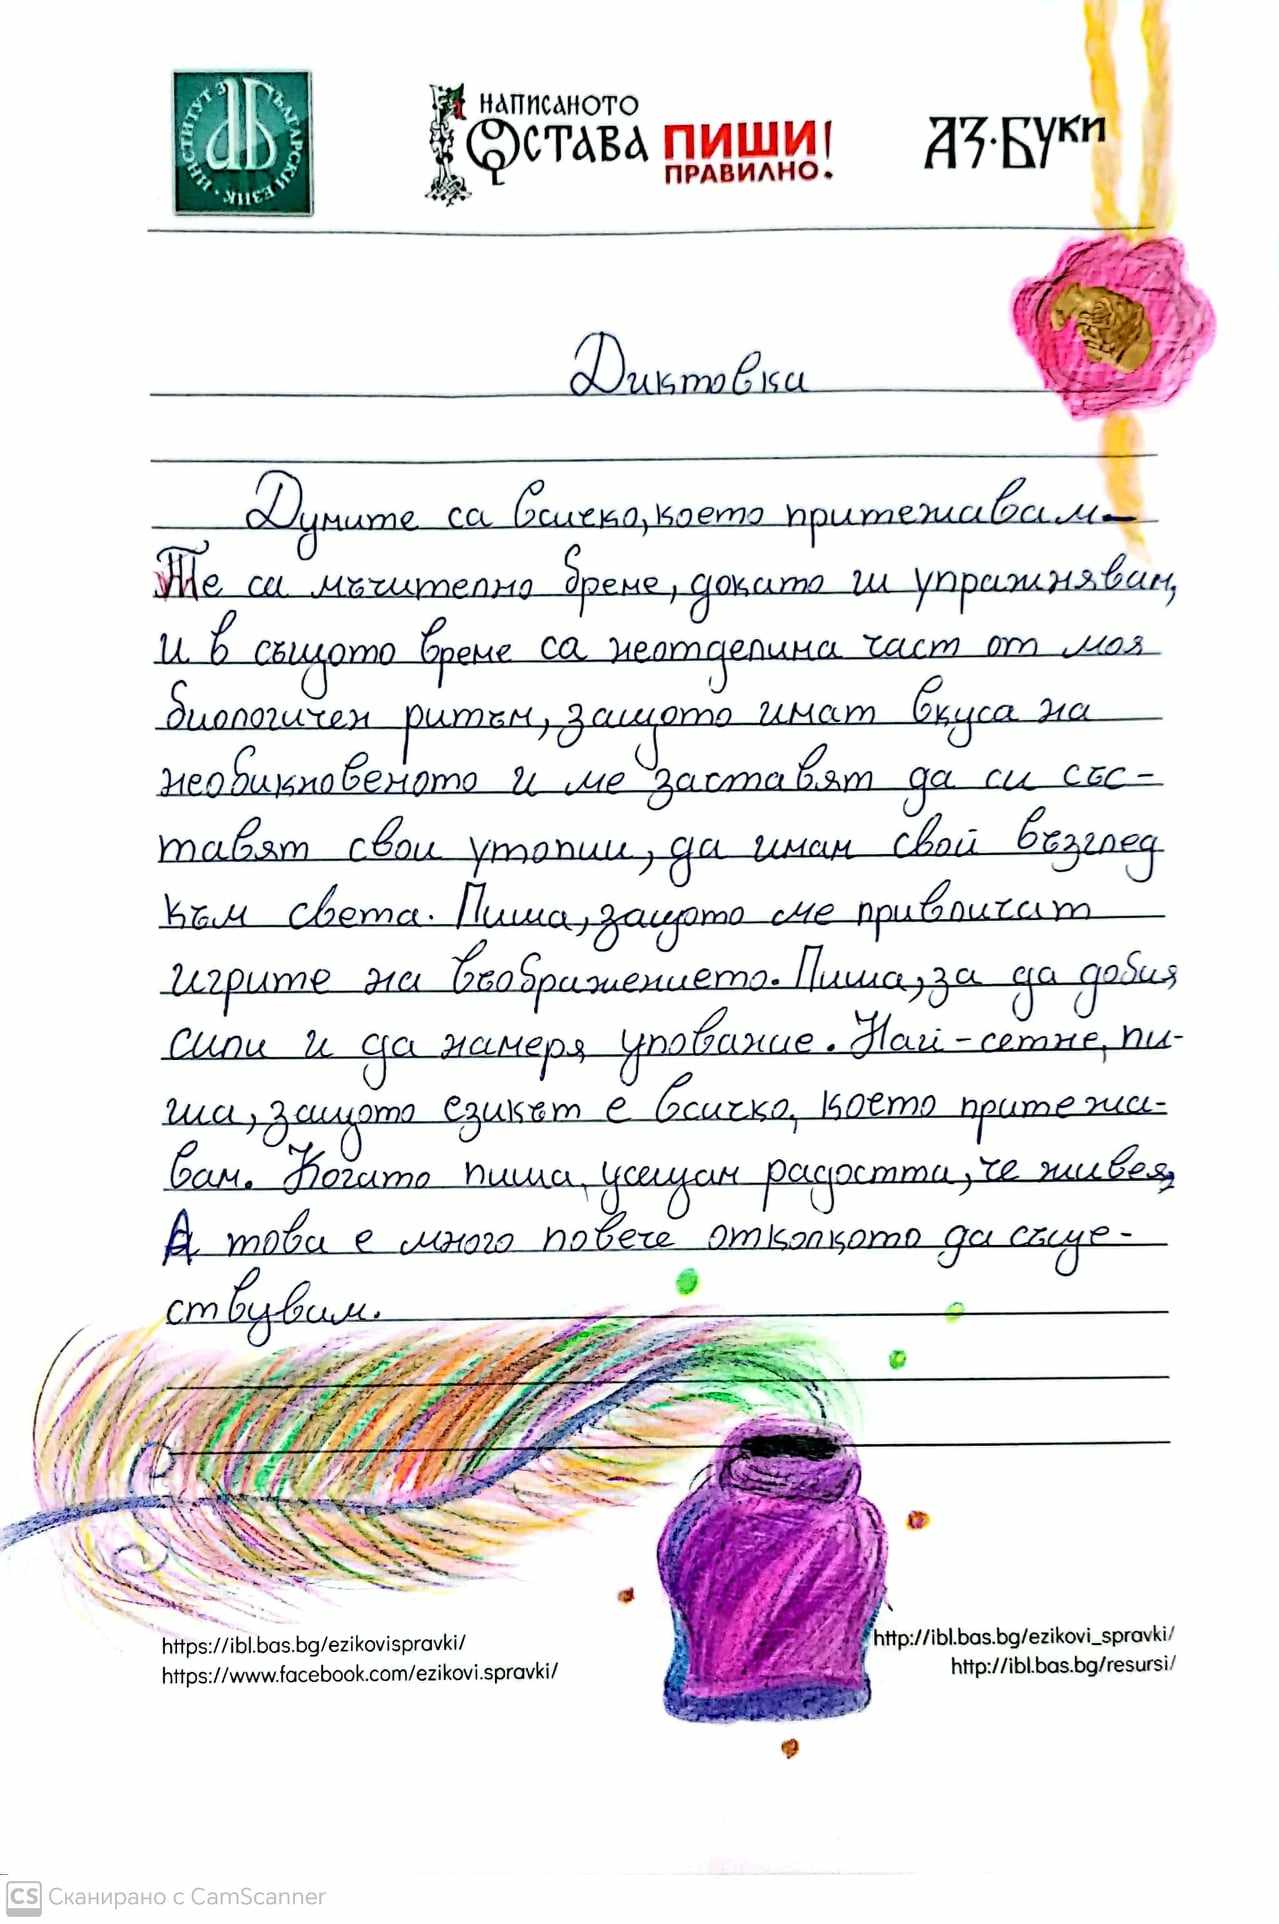 ИНСТИТУТ ЗА БЪЛГАРСКИ ЕЗИК
НАПИСАНОТО
ОСТАВА ПИШИ
ПРАВИЛНО!
АЗ·БУКИ
Диктовка
Думите са всичко, което притежавам.
Те са мъчително бреме, докато ги упражнявам,
и в същото време са неотделима част от моя
биологичен ритъм, защото имат вкуса на
необикновеното и ме заставят да си със-
тавят свои утопии, да имам свой възглед
към света. Пиша, защото ме привличат
игрите на въображението. Пиша, за да добия
сили и да намеря упование. Най-сетне, пи-
ша, защото езикът е всичко, което притежа-
вам. Когато пиша, усещам радостта, че живея,
А това е много повече отколкото да съще-
ствувам.
https://ibl.bas.bg/ezikovispravki/
https://www.facebook.com/ezikovi.spravki/
http://ibl.bas.bg/ezikovi_spravki/
http://ibl.bas.bg/resursi/
CS Сканирано с CamScanner